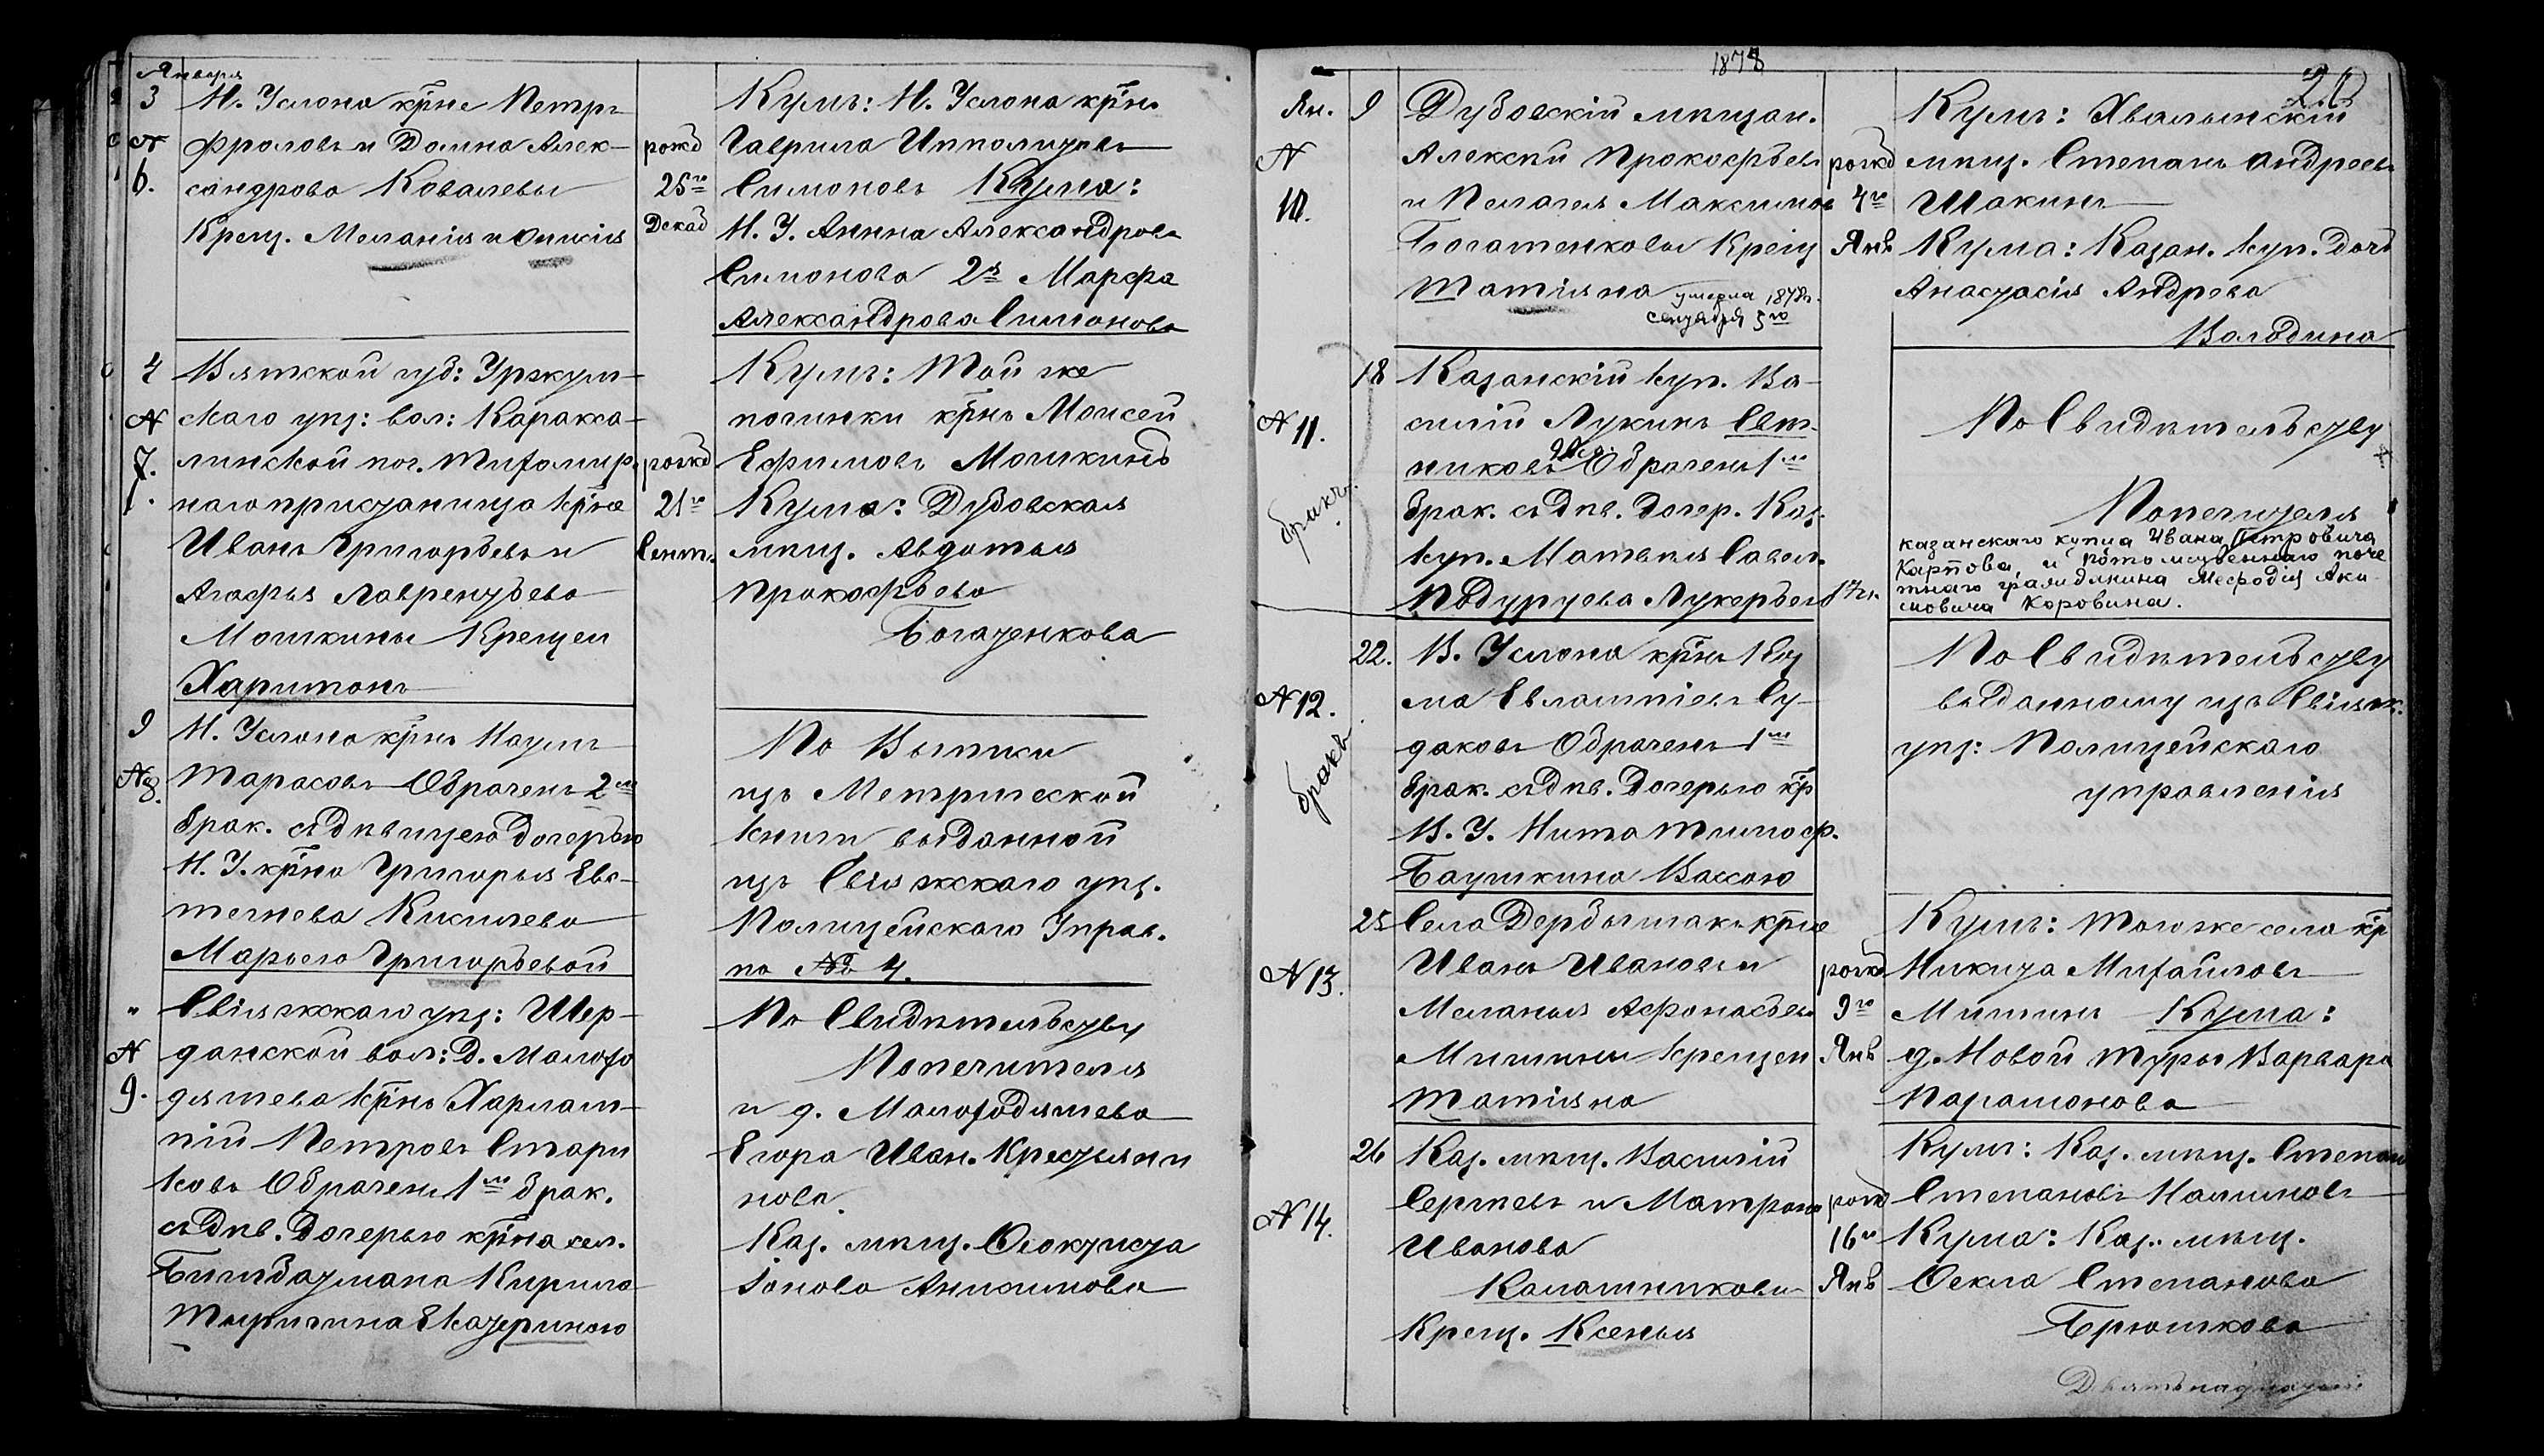 Января
3 Н. Услона кр̃не Петръ
№ Фроловъ и Домна Алек-
6. сандрова Ковалевы
Крещ. Меланія и Онисія
рожд
25го
Декаб
Кумъ: Н. Услона кр̃нъ
Гаврила Ипполитовъ
Симоновъ Кума:
Н. У. Анна Александрова
Симонова 2я Марфа
Александрова Симонова
4 Вятской губ: Уржум-
№ скаго уѣз: вол: Каракса-
7. линской поч. Тихомир-
наго пристанища кр̃не
Иванъ Григорьевъ и
Агафья Лаврентьева
Мошкины Крещен
Харитонъ
рожд
21го
Сент.
Кумъ: Той же
починки кр̃нъ Моисей
Ефимовъ Мошкинъ
Кума: Дубовская
мѣщ. Авдотья
Прокофьева
Богатенкова
9 Н. Услона кр̃нъ Наумъ
№8. Тарасовъ Обрачен 2мъ
брак. съ дѣвицею дочерью
Н. У. кр̃на Григорья Евс-
тегнева Киселева
Марьею Григорьевой
По Выписи
изъ Метрической
книги выданной
изъ Свіяжскаго уѣз.
Полицейскаго Управ.
по № 4.
" Свіяжскаго уѣз: Шир-
№ данской вол: Д. Малохо
9. дяшева кр̃нъ Харлам-
пій Петровъ Стари
ковъ Обрачен 1мъ брак.
съ дѣв. Дочерью кр̃на сел.
Бишбатмана Кирила
Тыригина Екатериною
По Свидѣтельству
Попечителя
и д. Малоходяшева
Егора Иван. Крестьяни
нова.
Каз. мѣщ. Феоктиста
Іонова Анисимова
1878
26
Ян. 9 Дубовскій мѣщан.
№ Алексѣй Прокофьевъ
10. и Пелагея Максимова
Богатенковы Крещ
Татіяна умерла 1878г.
сентября 5го
рожд
4го
Янв
Кумъ: Хвалынскій
мѣщ. Степанъ Андреевъ
Шакинъ
Кума: Казан. куп. Дочь
Анастасія Андрева
Володина
18 Казанскій куп. Ва-
№ 11. силій Лукинъ Свѣт-
никовъ Обрачен 1мъ
бракъ. брак. съ дѣв. дочер. Каз.
куп. Матвѣя Савел.
Подуруева Лукерьею 17л.
По Свидѣтельству
Попечителя
казанскаго купца Ивана Петровича
Карпова, и потомственнаго поче
тнаго гражданина Мефодія Аки-
мовича Коровина.
22. В. Услона кр̃нъ Коз
№ 12. ма Евлампіевъ Су-
даковъ Обрачен 1мъ
бракъ брак. съ дѣв. Дочерью кр̃
В. У. Никита Тимоф.
Баушкина Вассою
По Свидѣтельству
выданному изъ Свіяжк.
уѣз: Полицейскаго
управленія
25 Села Дербышакъ кр̃не
№ 13. Иванъ Ивановъ и
Меланья Афонасьева
Мишины крещен
Татіяна
рожд
9го
Янв
Кумъ: Того же села кр̃
Никита Михайловъ
Мишинъ Кума:
д. Новой Туры Варвара
Парамонова
26 Каз. мѣщ. Василій
№ 14. Сергѣевъ и Матрона
Иванова
Калашниковы
Крещ. Ксенья
рожд
16го
Янв
Кумъ: Каз. мѣщ. Степан
Степановъ Налимовъ
Кума: Каз. мѣщ.
Фекла Степанова
Брюшкова